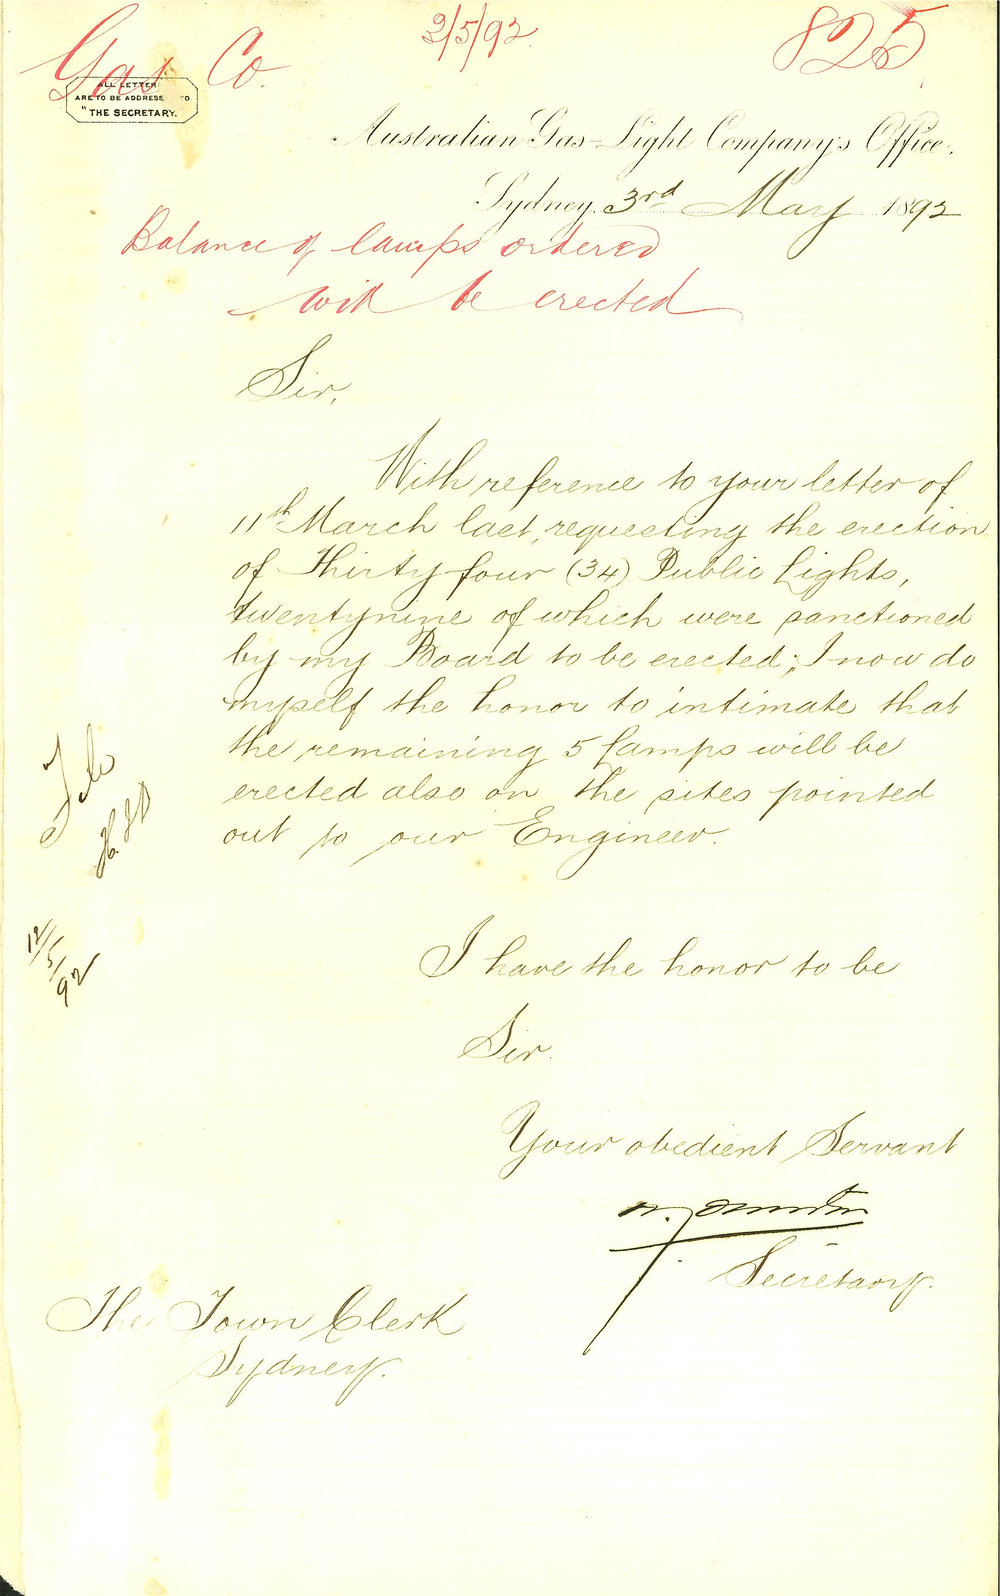 Gas Co.
2/5/92
825
ALL LETTERS
ARE TO BE ADDRESSED TO
"THE SECRETARY.
Australian Gas-Light Company's Office.
Sydney, 3rd May 1892
Balance of lamps ordered
will be erected
Sir,
With reference to your letter of
11th March last, requesting the erection
of Thirty four (34) Public Lights,
twentynine of which were sanctioned
by my Board to be erected; I now do
myself the honor to intimate that
the remaining 5 Lamps will be
erected also on the sites pointed
out to our Engineer.
12/5/92
I have the honor to be
Sir.
Your obedient Servant
Secretary.
The Town Clerk
Sydney.